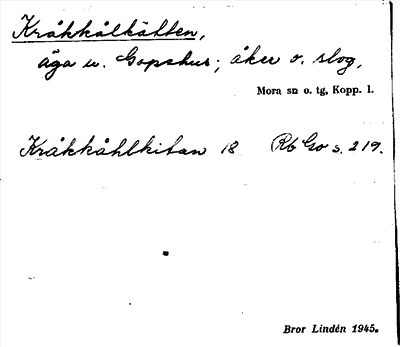 Kråkkålkätten,
äga u. Gopshus; åker o. slog,
Mora sn o. tg, Kopp. l.
Kråkkåhlkitan 18 Rb Go s. 219.
Bror Lindén 1945.